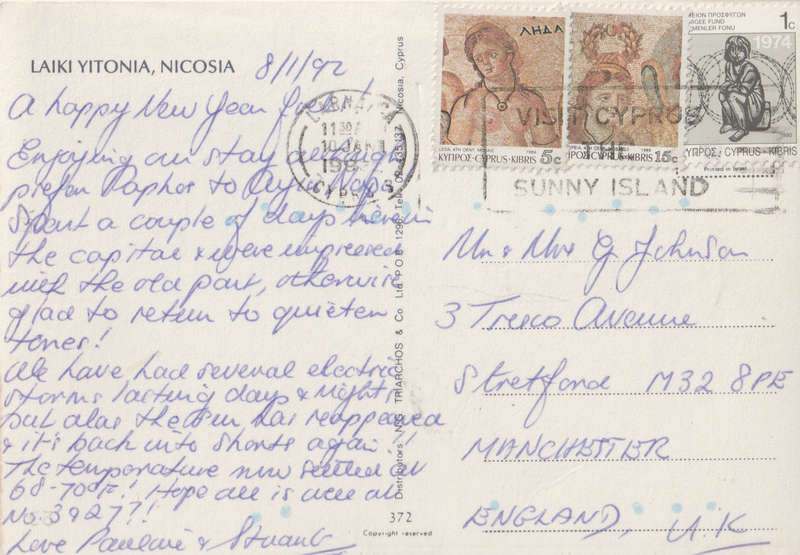 LAIKI YITONIA, NICOSIA
8/1/92
A happy New Year from both
Enjoying our stay although
prefer Paphos to Ayia Napa.
Spent a couple of days here in
the capital & were impressed
with the old part, otherwise
glad to return to quieter
tones!
We have had several electric
storms lasting days & nights
but alas the sun has reappeared
& it's back into shorts again!!
The temperature now settled at
68-70°F! Hope all is well at
No. 39277!
Love Pauline & Stuart
Distributors NSG TRIARCHOS & Co Ltd P.O.B. 1290 Nicosia, Cyprus
372
Copyright reserved
LARNACA
11 30
10 JAN
199
CYPRUS
ΛΗΔΑ
ΚΥΠΡΟΣ·CYPRUS·KIBRIS 5c
ΚΥΠΡΟΣ·CYPRUS·KIBRIS 15c
1c
1974
ΚΥΠΡΟΣ·CYPRUS·KIBRIS
Printed in Israel
VISIT CYPRUS
SUNNY ISLAND
Mr & Mrs G Johnson
3 Tresco Avenue
Stretford M32 8PE
MANCHESTER
ENGLAND, U.K